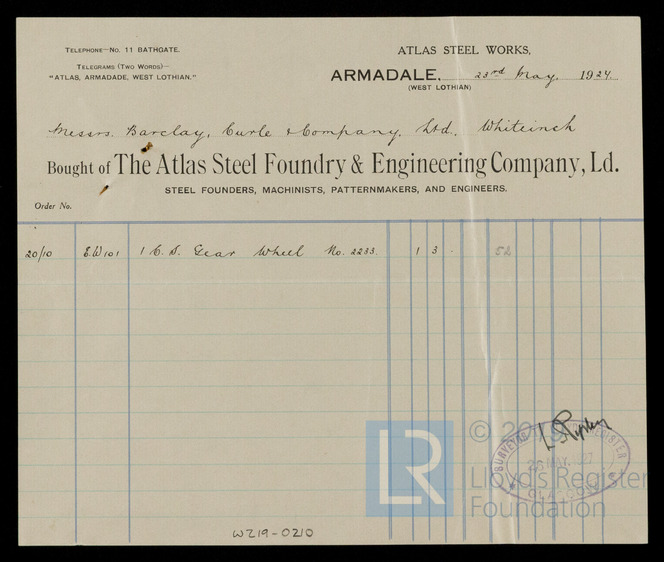 TELEPHONE—NO. 11 BATHGATE.
TELEGRAMS (TWO WORDS)—
"ATLAS, ARMADADE, WEST LOTHIAN."
ATLAS STEEL WORKS,
ARMADALE, 23rd May, 1924.
(WEST LOTHIAN)
Messrs. Barclay, Curle & Company, Ltd. Whiteinch
Bought of The Atlas Steel Foundry & Engineering Company, Ld.
STEEL FOUNDERS, MACHINISTS, PATTERNMAKERS, AND ENGINEERS.
Order No.
20/10 E.W101 1 C. S. Gear Wheel No. 2233. 1 3 - 52
LR
© 20
Lloyd's Register
Foundation
MAY
GLASGOW
W219-0210